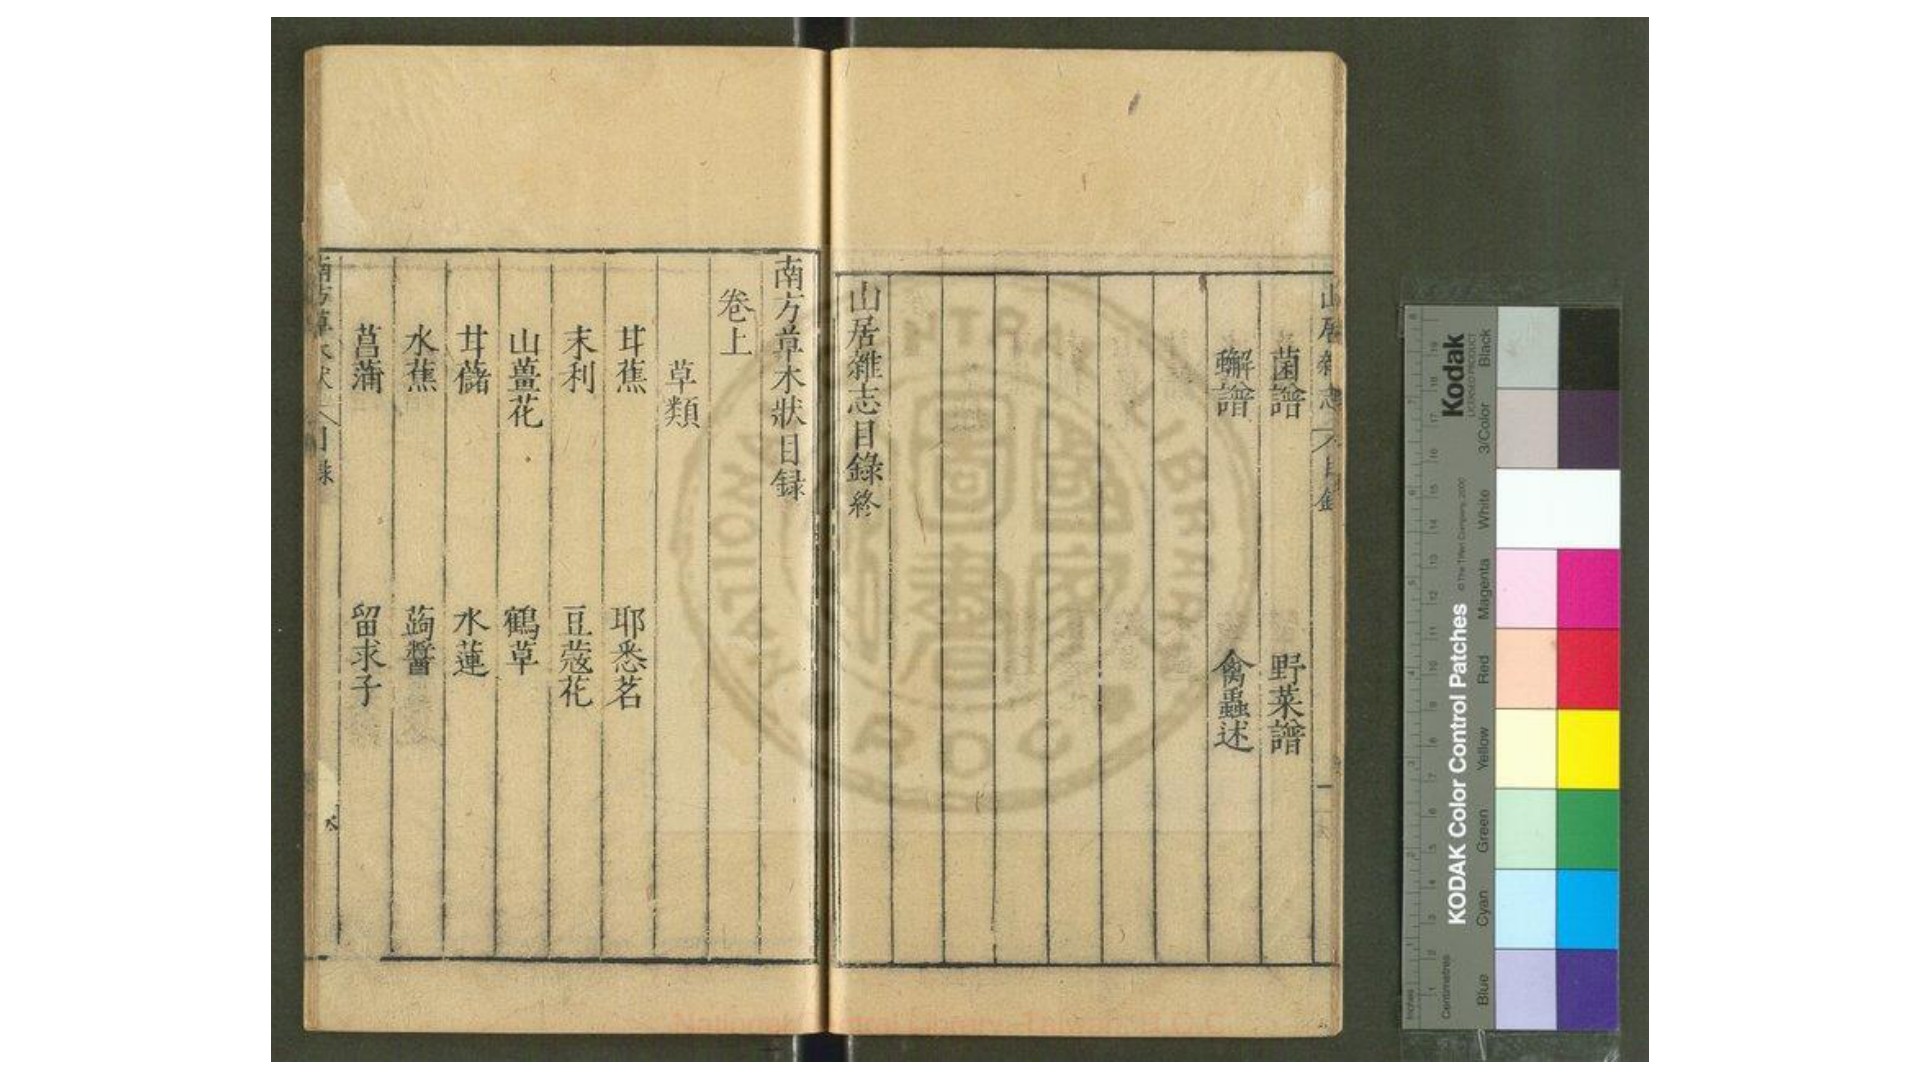 菌譜 野菜譜
蠏譜 禽蟲述
山居雜志目錄終
南方草木狀目録
卷上
草類
甘蕉 耶悉茗
末利 豆蔻花
山薑花 鶴草
甘藷 水蓮
水蕉 蒟醬
菖蒲 留求子
山居雜志 目錄 一
南方草木狀 目錄
國家圖書
LIBRARY
NATIONAL
R O C
National Central Library, Taiwan, R.O.C
Kodak
LICENSED PRODUCT
KODAK Color Control Patches
© The Tiffen Company, 2000
Inches
Centimetres
Blue
Cyan
Green
Yellow
Red
Magenta
White
3/Color
Black